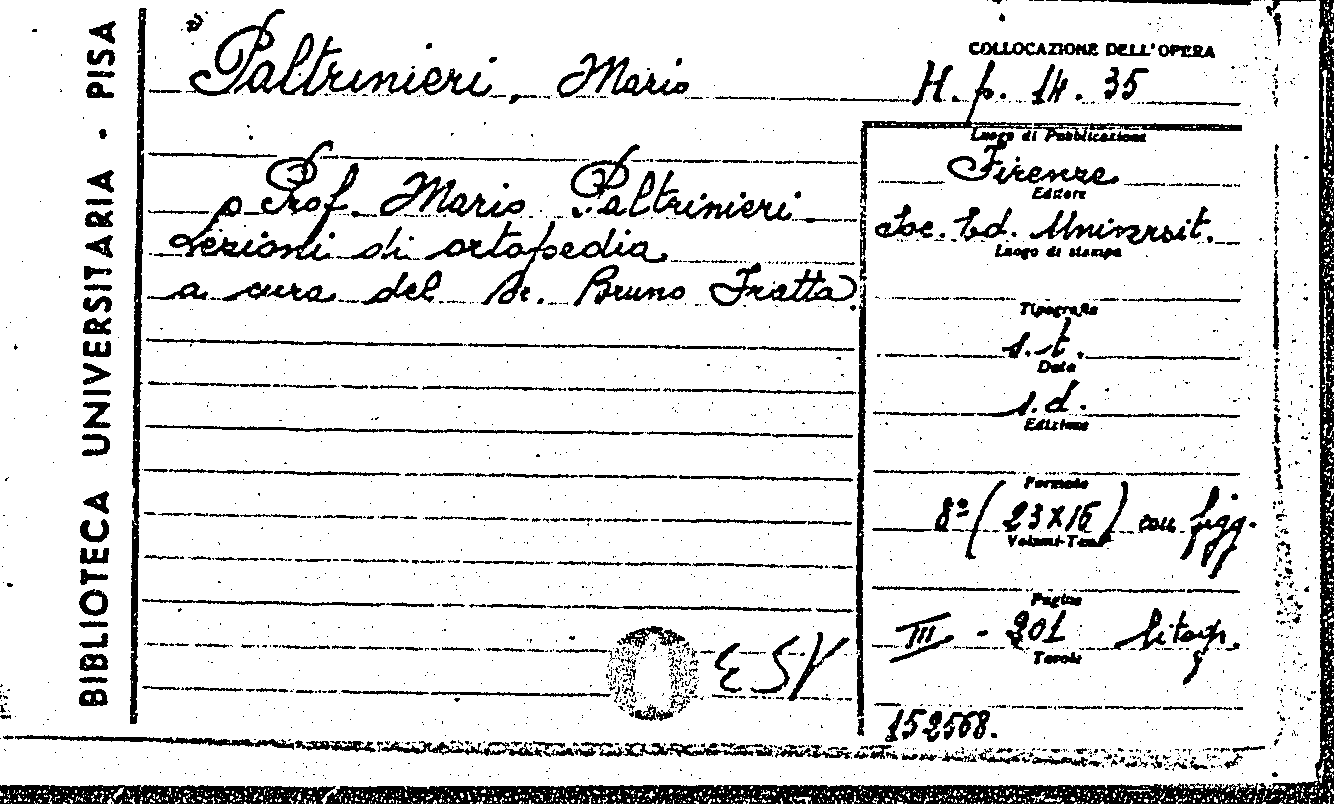 BIBLIOTECA UNIVERSITARIA - PISA
Paltrinieri, Mario
COLLOCAZIONE DELL'OPERA
H. p. 14. 35
Prof. Mario Paltrinieri
Lezioni di ortopedia
a cura del Dr. Bruno Fratta
Luogo di Pubblicazione
Firenze
Editore
Soc. Ed. Universit.
Luogo di stampa
Tipografia
s.t.
Data
s.d.
Edizione
Formato
8º (23x16) con figg.
Volumi-Tomi
Pagine
III - 201 litogr.
Tavole
152568.